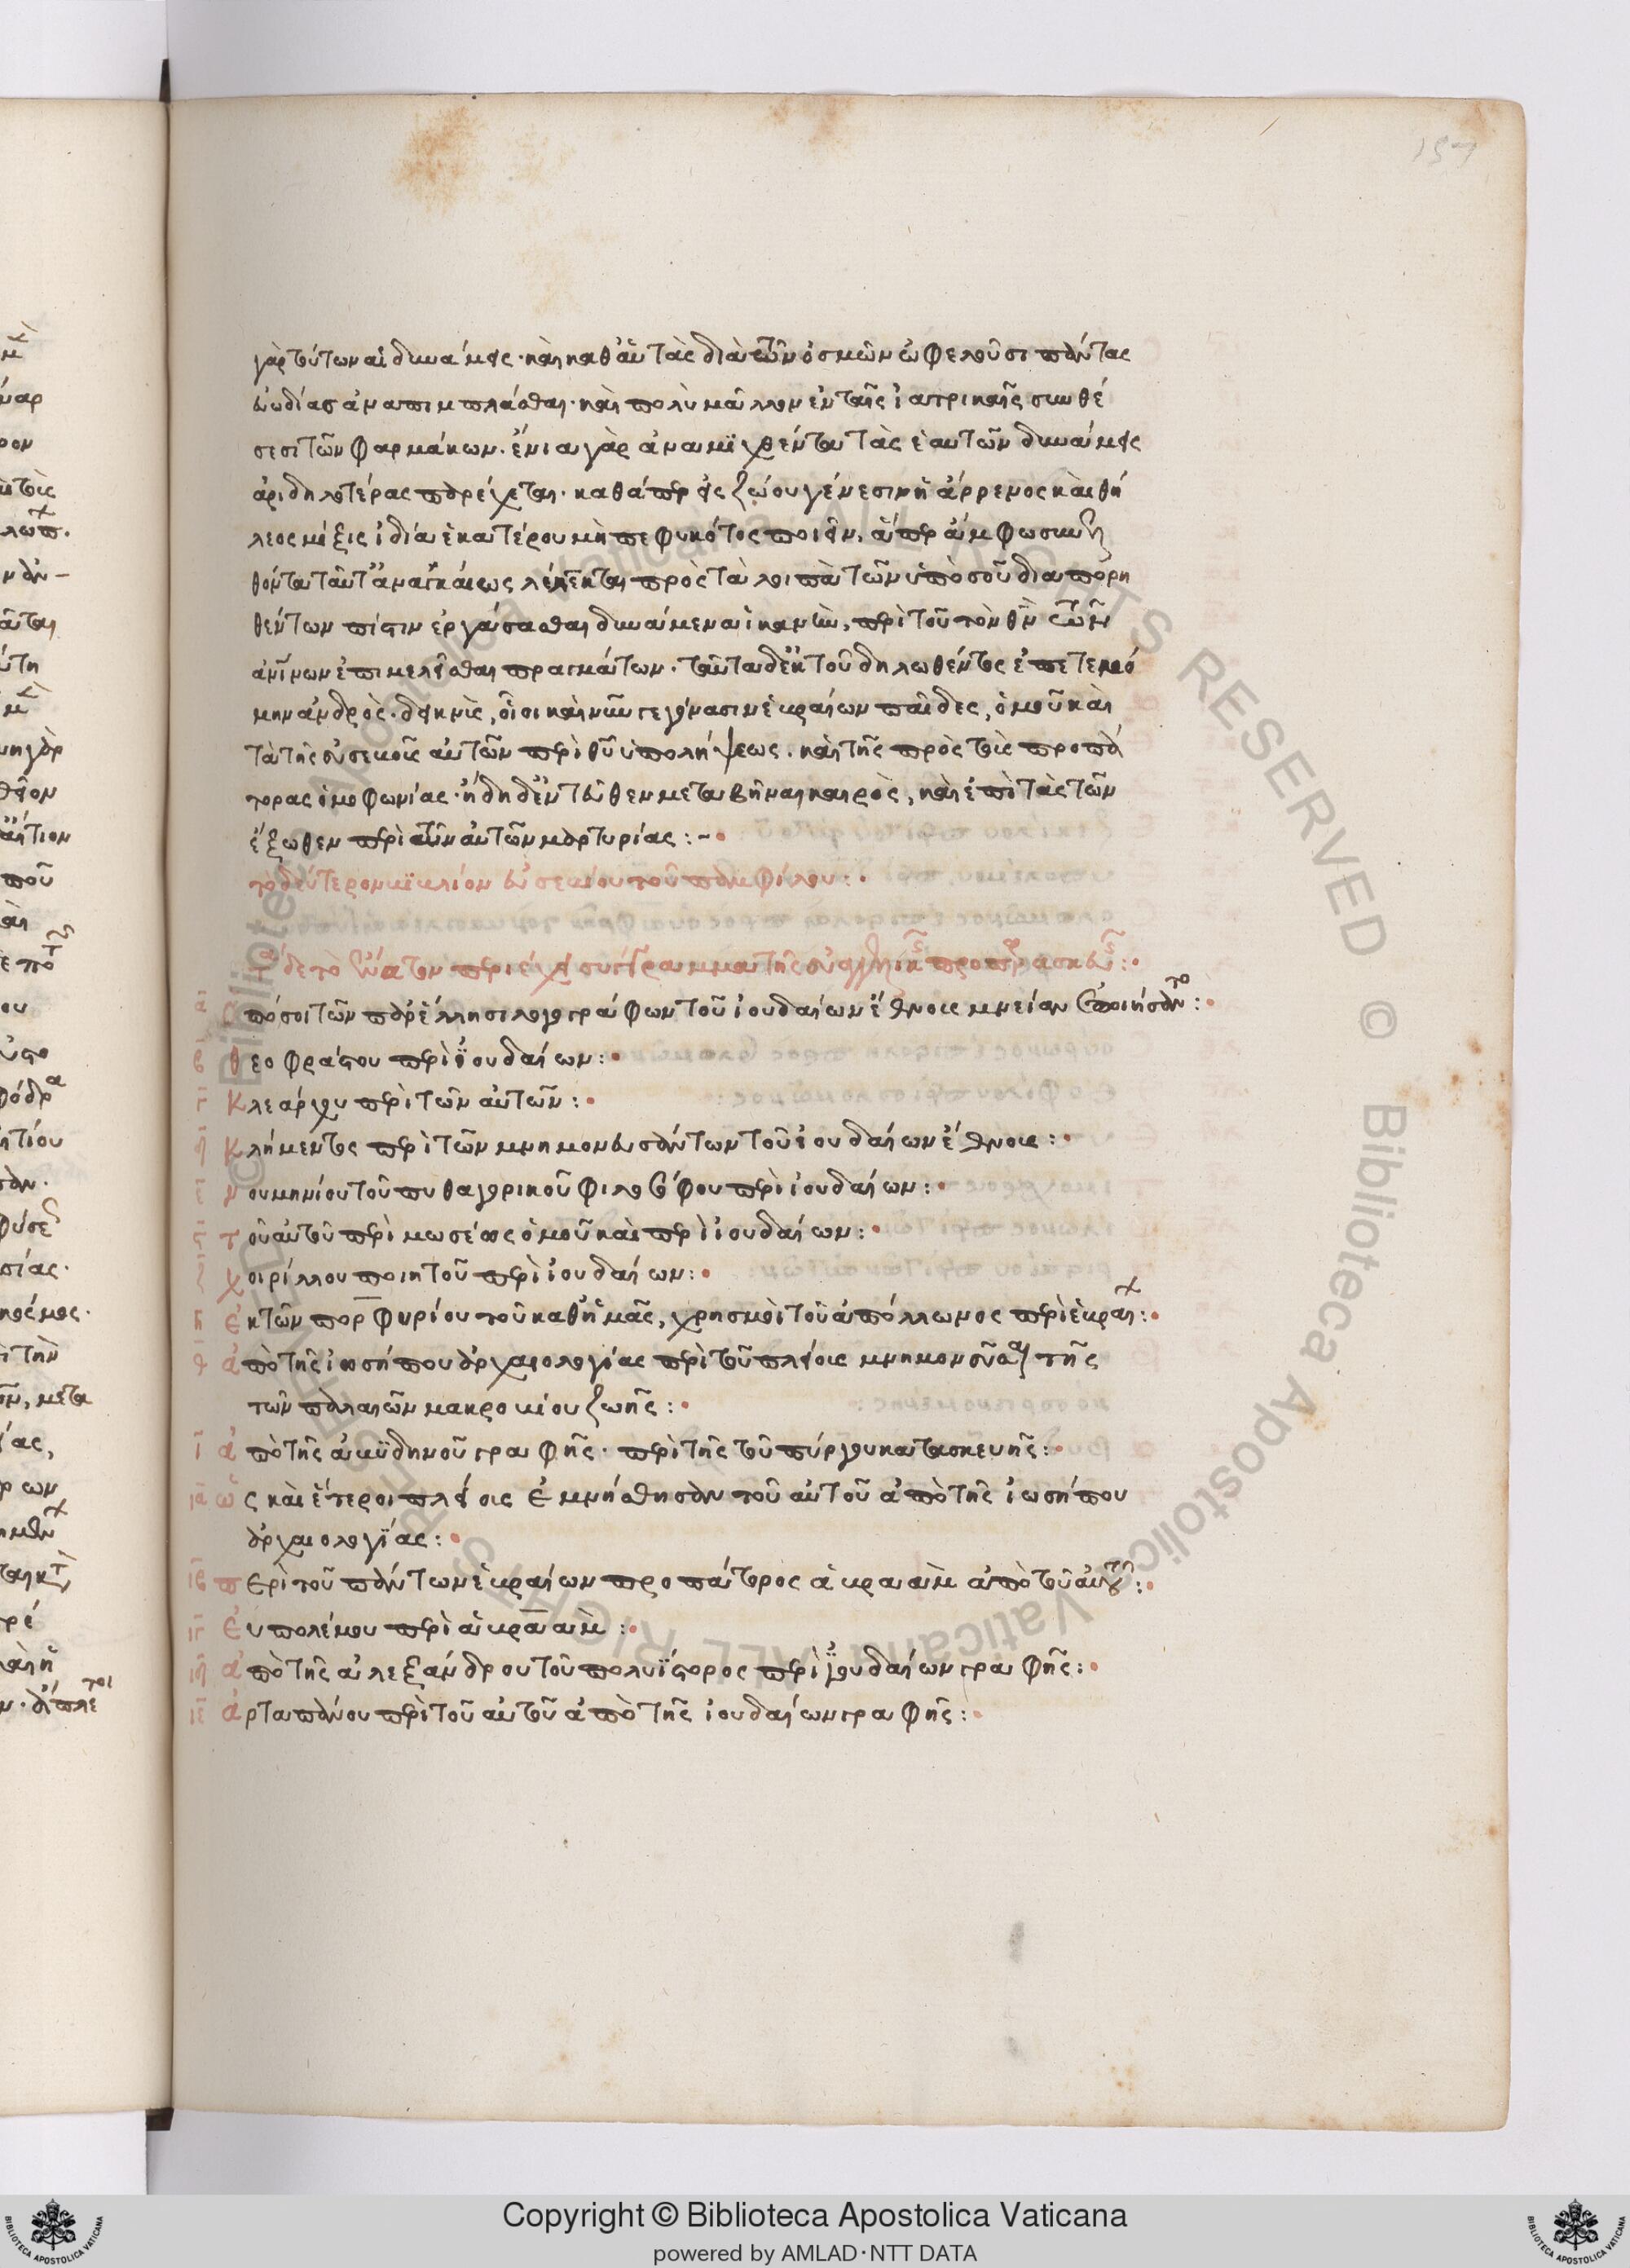 157
γὰρ τούτων αἱ δυνάμεις· καὶ καθ' αὑτὰς διὰ τῶν ὀσμῶν ὠφελοῦσι πάντας
εὐωδίας ἀναπίμπλασθαι· καὶ πολὺ μᾶλλον ἐν ταῖς ἰατρικαῖς συνθέ
σεσι τῶν φαρμάκων. ἔνια γὰρ ἀναμϊχθέντα τὰς ἑαυτῶν δυνάμεις
ἀριδηλοτέρας παρέχεται· καθάπερ εἰς ζώου γένεσιν ἡ ἄρρενος καὶ θή
λεος μίξις ἰδία ἑκατέρου μὴ πεφυκότος ποιεῖν, ἅπερ ἄμφω συνελ
θόντα ταῦτ' ἀναγκαίως λέλεκται πρὸς τὰ λοιπὰ τῶν ὑπὸ σοῦ διαπορη
θέντων πίστιν ἐργάσασθαι δυνάμενα ἱκανὴν, περὶ τοῦ τὸν θν τῶν
ἀνίνων ἐπιμελεῖσθαι πραγμάτων· ταῦτα δ' ἐκ τοῦ δηλωθέντος ἐπετεμό
μην ἀνδρὸς· δεικνὺς, οἷοι καὶ νῦν γεγόνασιν ἑβραίων παῖδες, ὁμοῦ καὶ
τὰ τῆς εὐσεβοῦς αὐτῶν περὶ θυ ὑπολήψεως. καὶ τῆς πρὸς τοὺς προπά
τορας ὁμοφωνίας· ἤδη δ' ἐντεῦθεν μεταβῆναι καιρὸς, καὶ ἐπὶ τὰς τῶν
ἔξωθεν περὶ τῶν αὐτῶν μαρτυρίας :-
τὸ δεύτερον βϊβλίον εὐσεβίου τοῦ παμφίλου :
Τάδε τὸ ἔνατον περιέχει σύγγραμμα τῆς εὐαγγελικῆς προπαρασκευῆς :
α Ὁπόσοι τῶν παρ' ἕλλησι λογογράφων τοῦ ἰουδαίων ἔθνους μνείαν ἐποιήσαντο :
β θεοφράστου περὶ ἰουδαίων :
γ Κλεάρχου περὶ τῶν αὐτῶν :
δ Κλήμεντος περὶ τῶν μνημονευσάντων τοῦ ἰουδαίων ἔθνους :
ε νουμηνίου τοῦ πυθαγορικοῦ φιλοσόφου περὶ ἰουδαίων :
ϛ τοῦ αὐτοῦ περὶ μωσέως ὁμοῦ καὶ περὶ ἰουδαίων :
ζ χοιρίλλου ποιητοῦ περὶ ἰουδαίων :
η ἐκ τῶν πορφυρίου τοῦ καθ' ἡμᾶς, χρησμοὶ τοῦ ἀπόλλωνος περὶ ἑβραίων :
θ ἀπὸ τῆς ἰωσήπου ἀρχαιολογίας περὶ τοῦ πλείους μνημονεῦσαι τῆς
τῶν παλαιῶν μακροβίου ζωῆς :
ι ἀπὸ τῆς ἀβϋδηνοῦ γραφῆς· περὶ τῆς τοῦ πύργου κατασκευῆς :
ια ὡς καὶ ἕτεροι πλείους ἐμνήσθησαν τοῦ αὐτοῦ ἀπὸ τῆς ἰωσήπου
ἀρχαιολογΐας :
ιβ περὶ τοῦ πάντων ἑβραίων προπάτορος ἁβραὰμ ἀπὸ τοῦ αὐτοῦ :
ιγ εὐπολέμου περὶ ἁβραὰμ :
ιδ ἀπὸ τῆς ἀλεξάνδρου τοῦ πολυΐστορος περὶ ἰουδαίων γραφῆς :
ιε ἀρταπάνου περὶ τοῦ αὐτοῦ ἀπὸ τῆς ἰουδαίων γραφῆς :
Copyright © Biblioteca Apostolica Vaticana
powered by AMLAD·NTT DATA